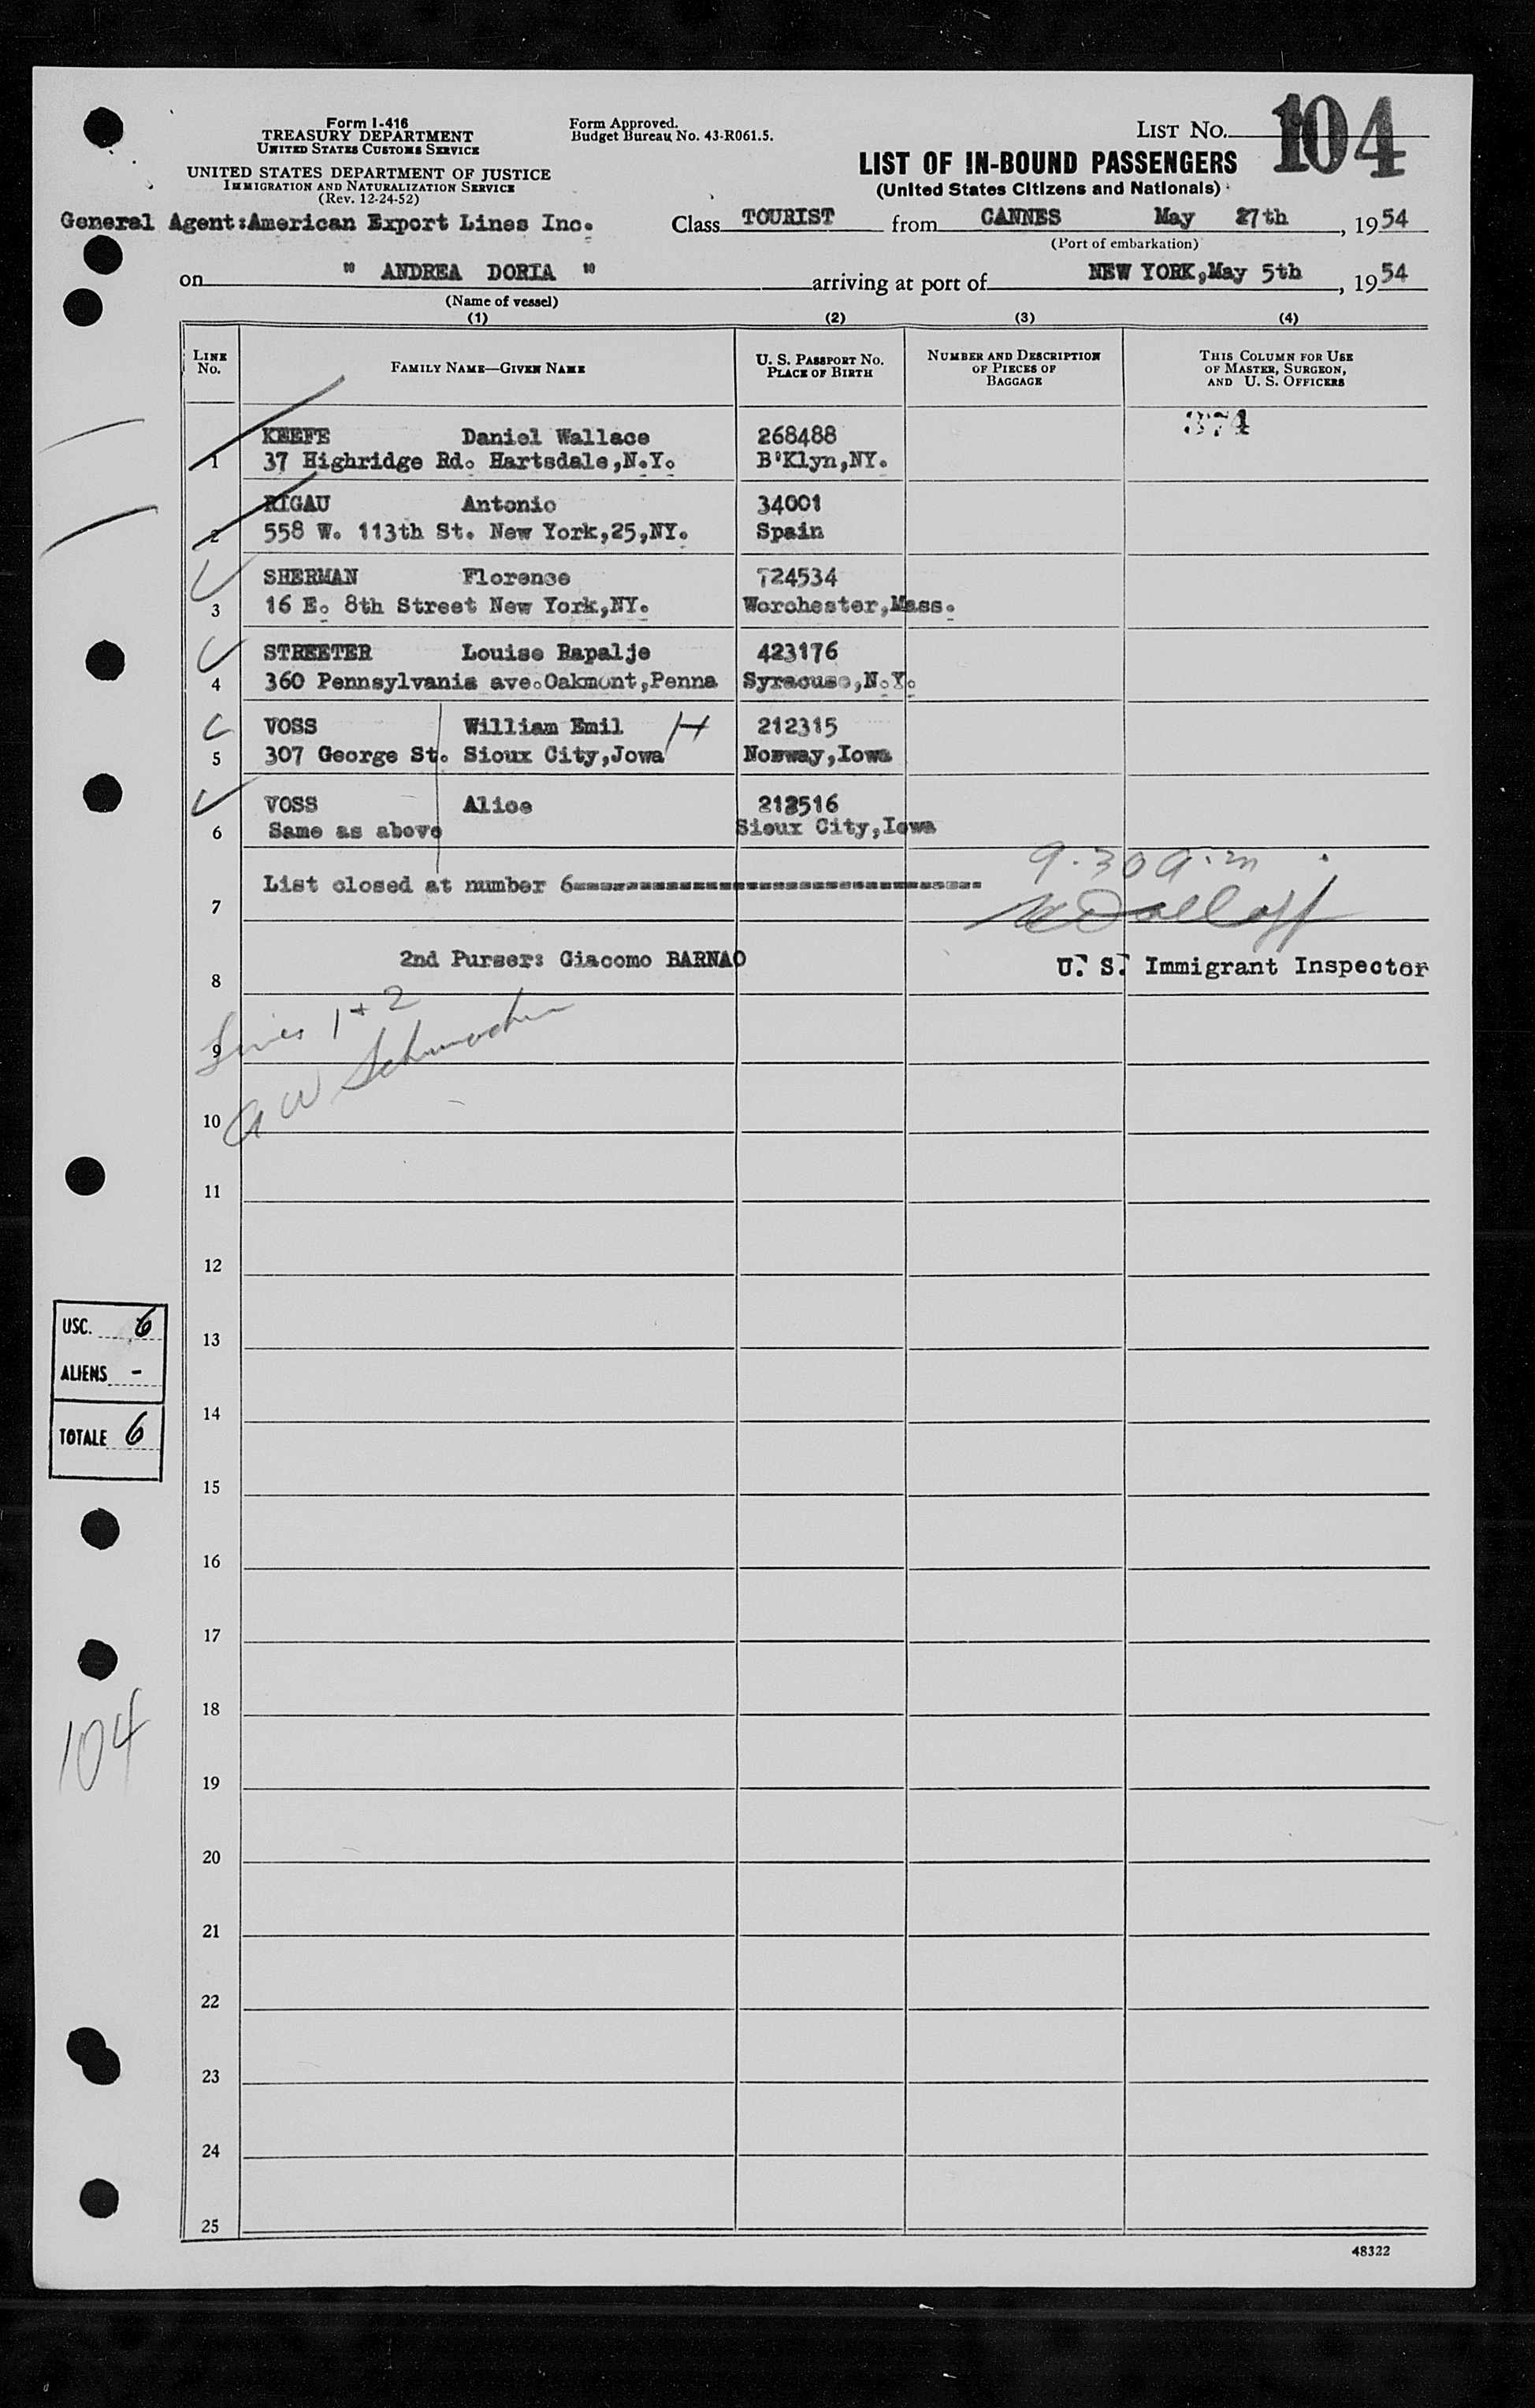 Form I-416
TREASURY DEPARTMENT
UNITED STATES CUSTOMS SERVICE
UNITED STATES DEPARTMENT OF JUSTICE
IMMIGRATION AND NATURALIZATION SERVICE
(Rev. 12-24-52)
Form Approved.
Budget Bureau No. 43-R061.5.
LIST NO. 104
LIST OF IN-BOUND PASSENGERS
(United States Citizens and Nationals)
General Agent:American Export Lines Inc. Class TOURIST from CANNES May 27th, 1954
(Port of embarkation)
on " ANDREA DORIA " arriving at port of NEW YORK,May 5th, 1954
(Name of vessel)
(1) (2) (3) (4)
LINE No. FAMILY NAME—GIVEN NAME U. S. PASSPORT NO. PLACE OF BIRTH NUMBER AND DESCRIPTION OF PIECES OF BAGGAGE THIS COLUMN FOR USE OF MASTER, SURGEON, AND U. S. OFFICERS
374
KEEFE Daniel Wallace 268488
1 37 Highridge Rd. Hartsdale,N.Y. B'Klyn,NY.
RIGAU Antonio 34001
2 558 W. 113th St. New York,25,NY. Spain
SHERMAN Florense 724534
3 16 E. 8th Street New York,NY. Worchester,Mass.
STREETER Louise Rapalje 423176
4 360 Pennsylvania ave.Oakmont,Penna Syracuse,N.Y.
VOSS William Emil H 212315
5 307 George St. Sioux City,Jowa Norway,Iowa
VOSS Alice 212516
6 Same as above Sioux City,Iowa
9.30 a.m.
List closed at number 6
7
2nd Purser: Giacomo BARNAO U. S. Immigrant Inspector
8
Lines 1 + 2
9
A W Schumacher
10
11
12
13
14
15
16
17
18
19
20
21
22
23
24
25
USC. 6
ALIENS -
TOTALE 6
104
48322